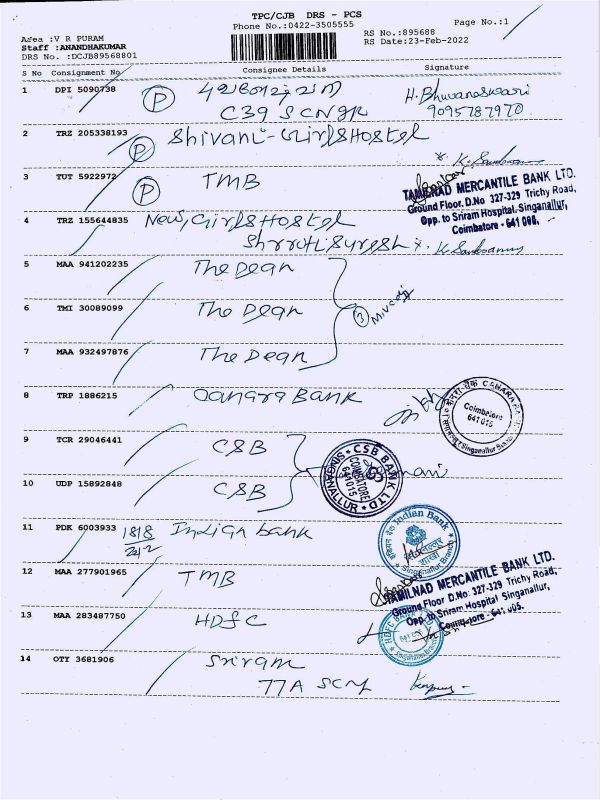 TPC/CJB DRS - PCS
Phone No.:0422-3505555
Page No.:1
Area :V R PURAM
Staff :ANANDHAKUMAR
DRS No. :DCJB89568801
RS No.:895688
RS Date:23-Feb-2022
S No Consignment No Consignee Details Signature
1 DPI 5090738 P H. Bhuvaneswari
C39 SCNGR 9095787970
2 TRZ 205338193 P Shivani - Girls Hostel
3 TUT 5922972 P TMB
TAMILNAD MERCANTILE BANK LTD.
Ground Floor, D.No 327-329 Trichy Road,
Opp. to Sriram Hospital, Singanallur,
Coimbatore - 641 005.
4 TRZ 155644835 New Girls Hostel
Shruti Suresh
5 MAA 941202235 The Dean
6 TMI 30089099 The Dean
3
7 MAA 932497876 The Dean
8 TRP 1886215 Canara Bank
CANARA BANK
Coimbatore
641 015
Singanallur
9 TCR 29046441 CSB
CSB BANK LTD
COIMBATORE
641015
SINGANALLUR
10 UDP 15892848 CSB
11 PDK 6003933 1818 Indian bank
Indian Bank
Singanallur Branch
12 MAA 277901965 TMB
TAMILNAD MERCANTILE BANK LTD.
Ground Floor D.No: 327-329 Trichy Road,
Opp. to Sriram Hospital Singanallur,
Coimbatore - 641 005.
13 MAA 283487750 HDFC
HDFC BANK
14 OTY 3681906 Sriram
77A SCM